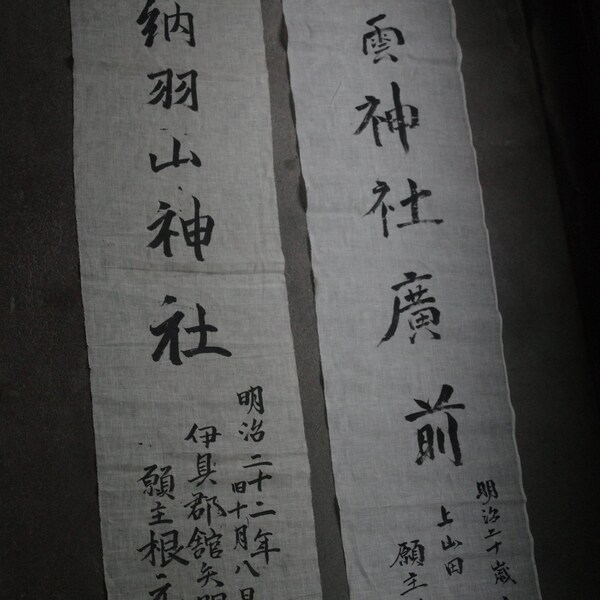 雲神社廣前
明治二十歳
上山田
願主
納羽山神社
明治二十二年
旧十月八日
伊具郡舘矢
願主根元